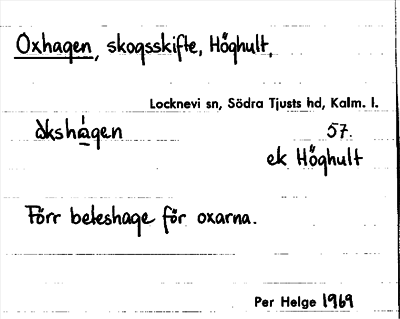 Oxhagen, skogsskifte, Höghult,
Locknevi sn, Södra Tjusts hd, Kalm. l.
òkshàgen 57.
ek Höghult
Förr beteshage för oxarna.
Per Helge 1969